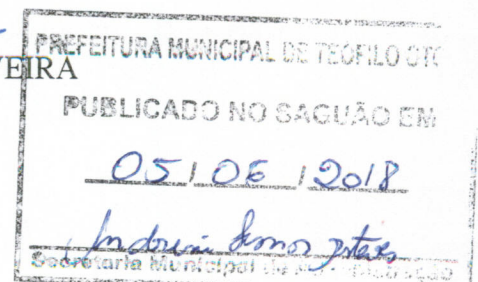 PREFEITURA MUNICIPAL DE TEOFILO OTO
VEIRA
PUBLICADO NO SAGUÃO EM
05 / 06 / 2018
Secretaria Municipal de